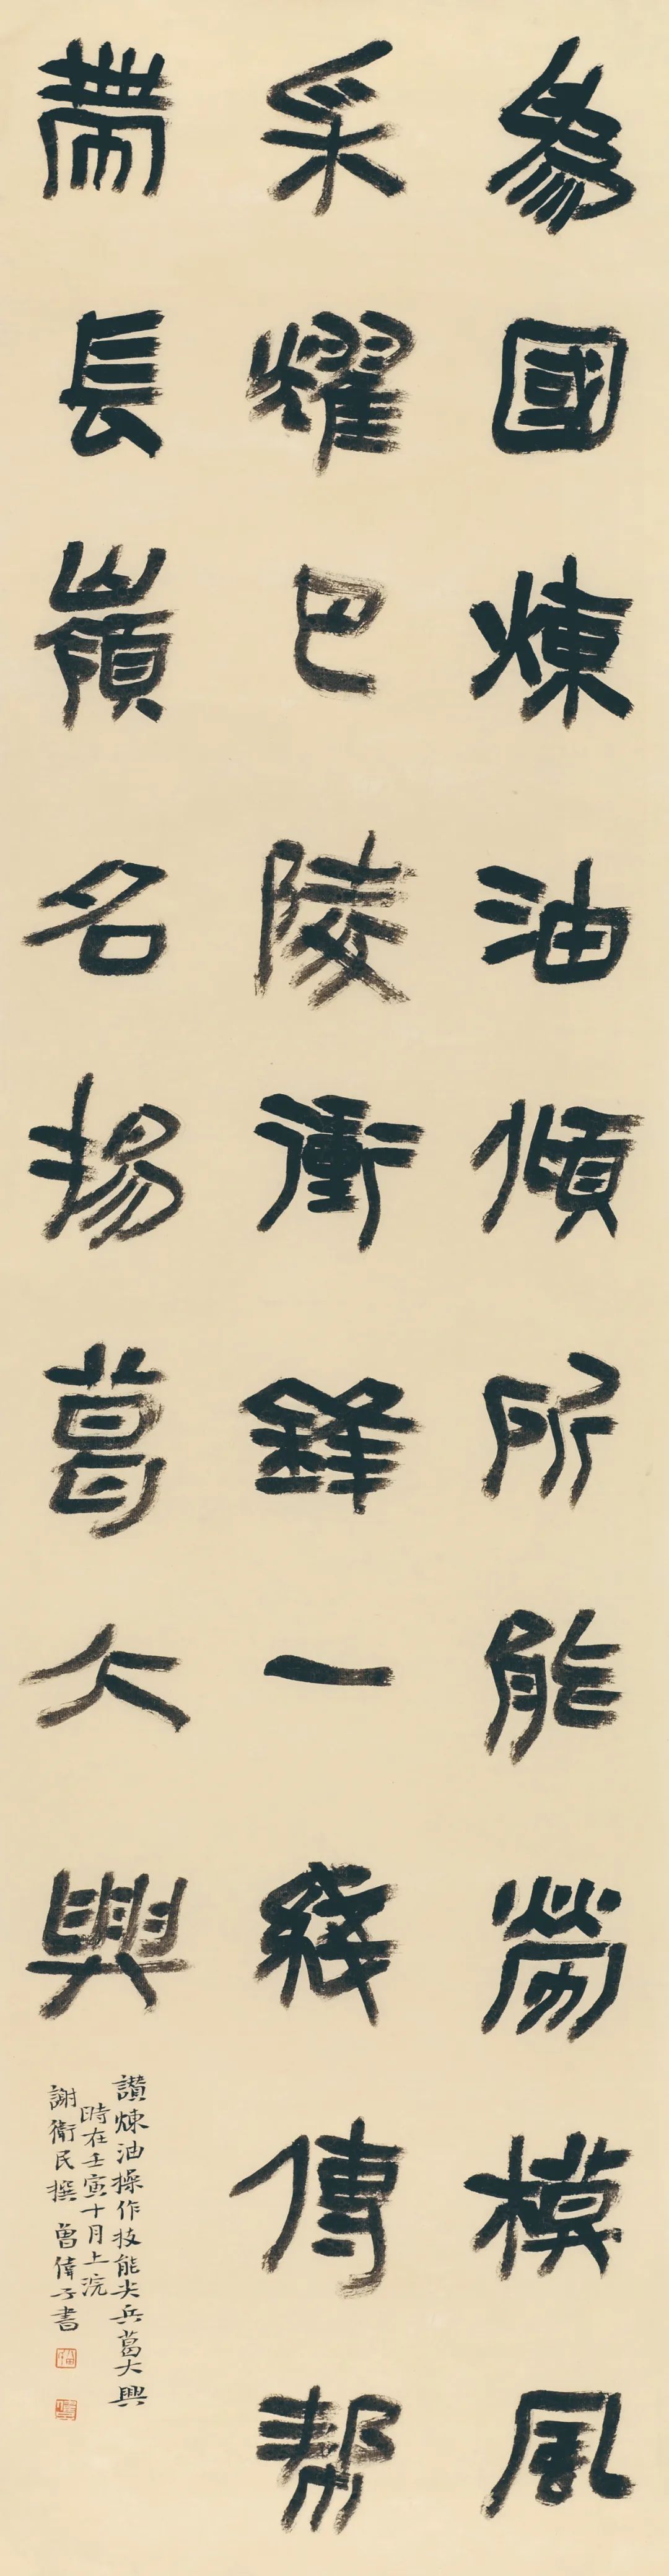 為國煉油傾所能勞模風
采耀巴陵衝鋒一綫傳幫
帶長嶺名揚葛大興
讚煉油操作技能尖兵葛大興
時在壬寅十月上浣
謝衛民撰 曾偉子書